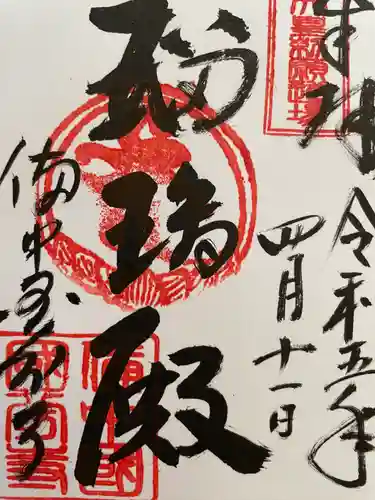 奉拝
令和五年
四月十一日
瑠璃殿
備中国分寺